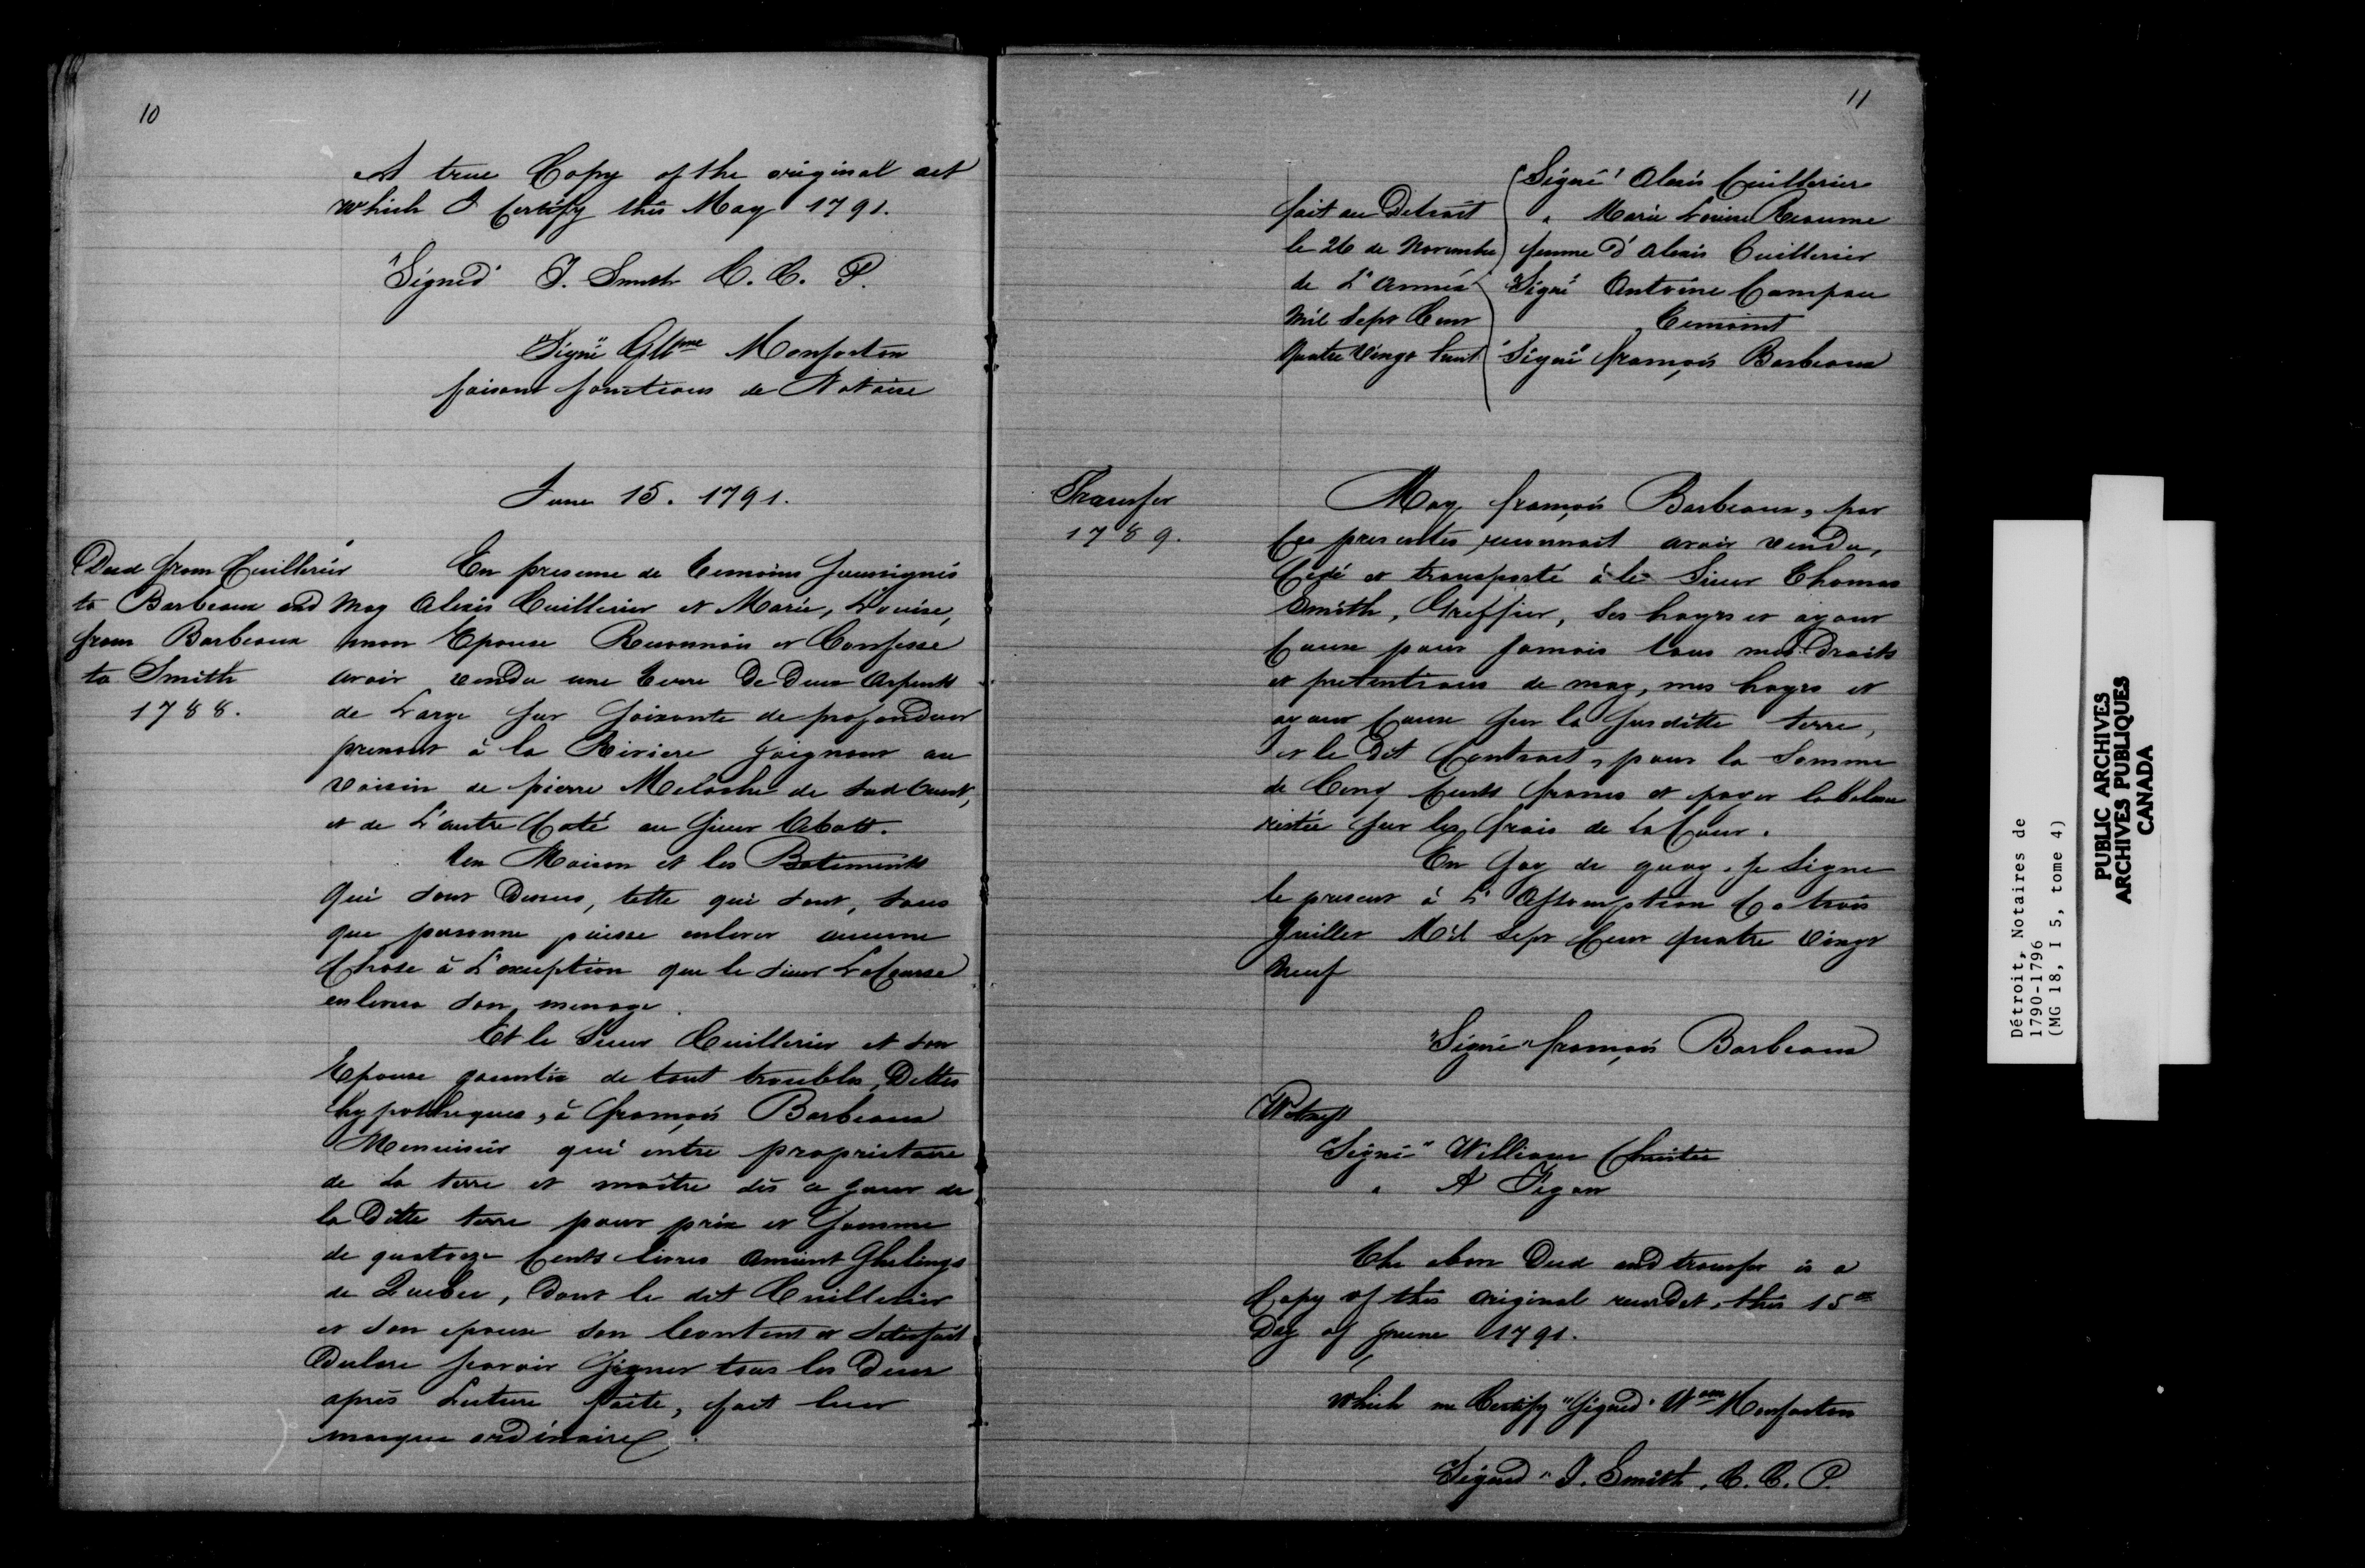 10
A true Copy of the original act
which I Certify this May 1791.
"Signed" T. Smith C. C. P.
"Signé" Gllme Monforton
faisant fonctions de Notaire
June 15. 1791.
Deed from Cuillerier
to Barbeaux and
from Barbeaux
to Smith
1788.
En presence de temoins soussignés
moy Alexis Cuillerier et Marie, Louise,
mon Epouse Reconnois et Confesse
avoir vendu une terre De Deux Arpents
de Large sur soixante de profondeur
prenant à la Riviere joignant au
voisin de pierre Meloche de sud Ouest,
et de L'autre Coté au sieur Abott.
La Maison et les Batiments
qui sont Dessus, telle qui sont, sans
que personne puisse enlever aucune
Chose à L'exception que le sieur
enlevera son menage.
Et le Sieur Cuillerier et son
Epouse garantie de tout troubles, Dettes
hypotheques, à françois Barbeaux
Menuisier qui entre proprietaire
de La terre et maître dès ce jour de
la Ditte terre pour prix et somme
de quatorze Cents livres ancient Shelings
de Quebec, Dont le dit Cuillerier
et son epouse son Content et Satisfait
Declare savoir signer tous les Deux
après Lecture faite, fait leur
marque ordinaire.
11
fait au Detroit
le 26 de Novembre
de L'Année
Mil Sept Cent
Quatre Vingt huit
"Signé" Alexis Cuillerier
" Marie Louise Reaume
femme d'Alexis Cuillerier
"Signé" Antoine Campau
Temoint
"Signé" françois Barbeaux
Transfer
1789.
Moy françois Barbeaux, par
Ces presentes reconnoit avoir vendu,
Cédé et transporté à le Sieur Thomas
Smith, Greffier, Ses hoyrs et ayant
Cause pour jamais tous mes Droits
et pretentions de moy, mes hoyrs et
ayant Cause sur la susditte terre,
et le Dit Contract, pour la Somme
de Cinq Cents francs et payer la balance
restée sur les frais de la Cour.
En foy de quoy, je Signe
le present à L'Assomption Ce trois
Juillet Mil Sept Cent quatre Vingt
Neuf
"Signé" françois Barbeaux
Witness
"Signé" William Christie
" A
The above Deed and transfer is a
Copy of the original recorded, this 15th
Day of June 1791.
Which we Certify "Signed" Wam Monforton
"Signed" T. Smith, C. C. P.
Détroit, Notaires de
1790-1796
(MG 18, I 5, tome 4)
PUBLIC ARCHIVES
ARCHIVES PUBLIQUES
CANADA